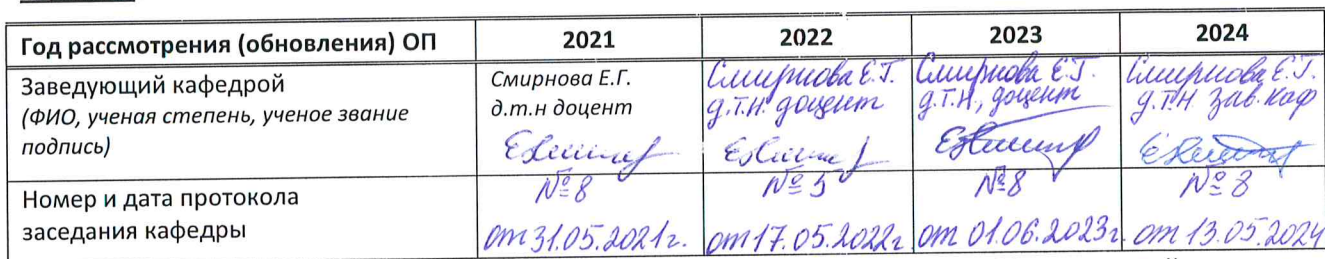 Год рассмотрения (обновления) ОП 2021 2022 2023 2024
Заведующий кафедрой
(ФИО, ученая степень, ученое звание
подпись)
Смирнова Е.Г.
д.т.н доцент
Смирнова Е.Г.
д.т.н. доцент
Смирнова Е.Г.
д.т.н., доцент
Смирнова Е.Г.
д.т.н. зав. каф
Номер и дата протокола
заседания кафедры
№ 8
от 31.05.2021г.
№ 5
от 17.05.2022г
№ 8
от 01.06.2023г.
№ 8
от 13.05.2024